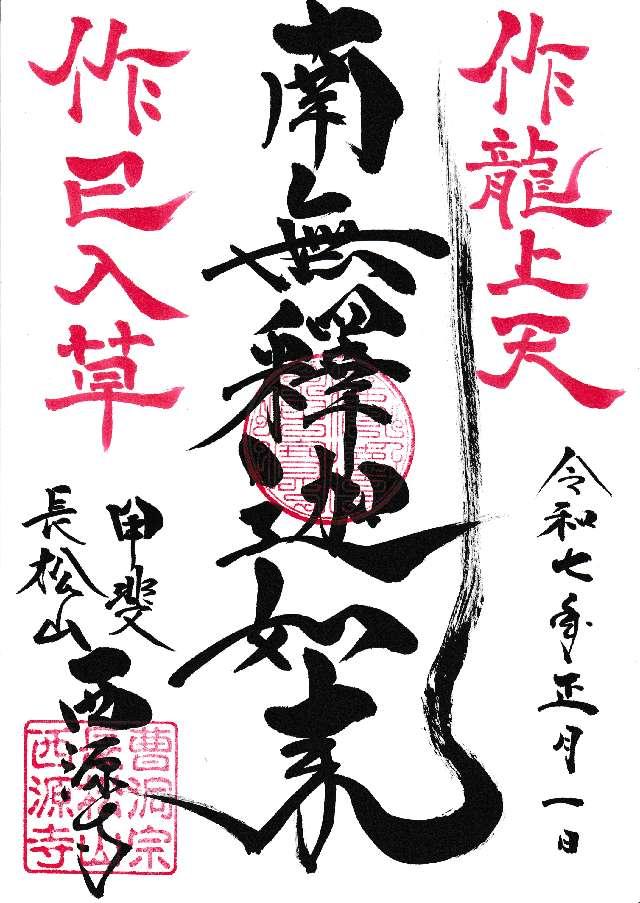 作龍上天
令和七年正月一日
南無釋迦如来
作巳入草
甲斐
長松山
西源寺
曹洞宗
長松山
西源寺